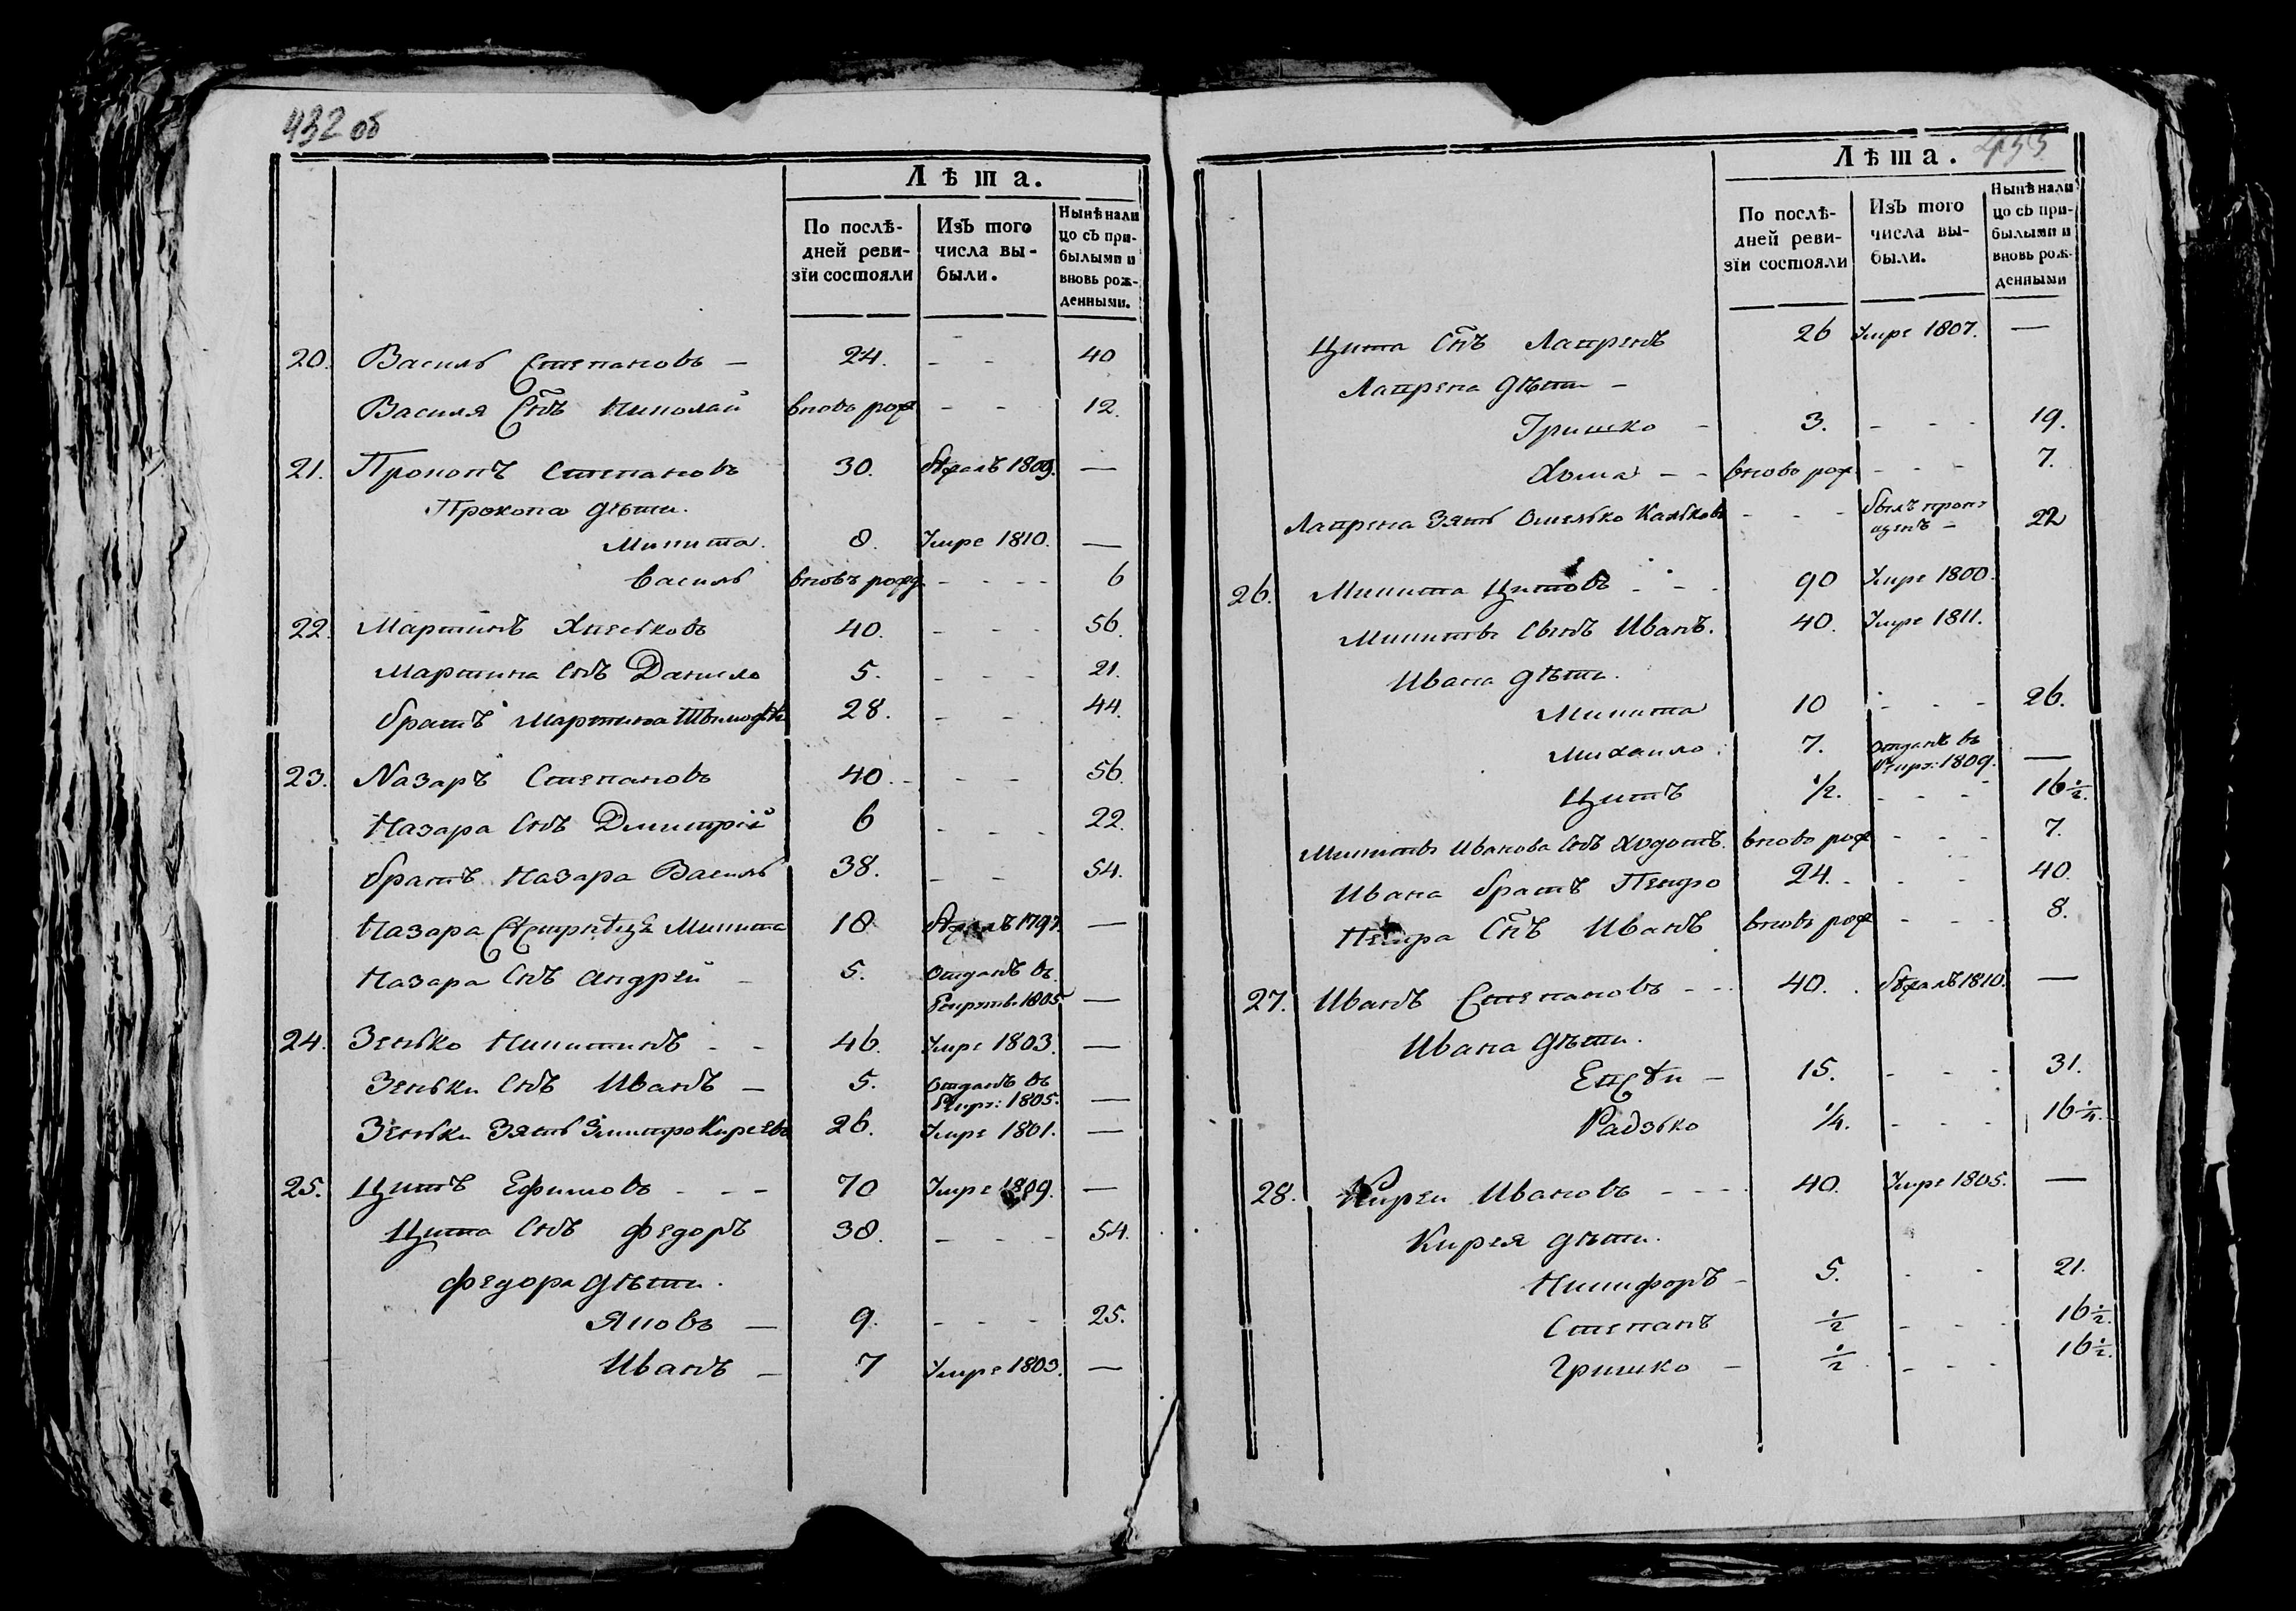 432 об
Лѣта.
По послѣ-
дней реви-
зїи состояли
Изъ того
числа вы-
были.
Нынѣ нали
цо съ при-
былыми и
вновь рож-
денными.
20. Василь Степановъ — 24. - - 40
Василя Снъ Николай вновь рож - - 12.
21. Прокопъ Степановъ 30. бѣжалъ 1809. —
Прокопа дѣти.
Микита. 8. Умре 1810. —
Василь вновь рожд - - - - 6
22. Мартинъ 40. - - - 56.
Мартина Снъ Данило 5. - - - 21.
братъ Мартина 28. - - 44.
23. Назаръ Степановъ 40. - - - 56.
Назара Снъ Дмитрій 6 - - - 22.
братъ Назара Василь 38. - - 54.
Назара Микита 18 бѣжалъ 1797. —
Назара Снъ Андрей - 5. Отданъ въ
Рекруты 1805 —
24. Зенько Никитинъ - - 46. Умре 1803. —
Зеньки Снъ Иванъ — 5. Отданъ въ
Рекр: 1805. —
Зеньки Зять Змитро Киреевъ 26. Умре 1801. —
25. Цитъ Ефимовъ - - - 70 Умре 1809. —
Цита Снъ Федоръ 38. - - - 54.
Федора дѣти.
Яковъ — 9. - - - 25.
Иванъ — 7 Умре 1803. —
433
Лѣта.
По послѣ-
дней реви-
зїи состояли
Изъ того
числа вы-
были.
Нынѣ нали
цо съ при-
былыми и
вновь рож-
денными
Цита Снъ Лавренъ 26 Умре 1807. —
Лаврена дѣти —
Гришко - 3. - - - 19.
Хома - - вновь рож - - - 7.
Лаврена Зять Омелько - - - былъ
22
26. Микита Цитовъ - - - 90 Умре 1800.
Микиты Сынъ Иванъ. 40. Умре 1811.
Ивана дѣти.
Микита 10 - - - 26.
Михайло. 7. Отданъ въ
Рекр: 1809. —
Цитъ 1/2. - - - 16 1/2.
Микиты Иванова Снъ Ходотъ. вновь рож - - - 7.
Ивана братъ Петро 24. - - - 40.
Петра Снъ Иванъ вновь рож - - - 8.
27. Иванъ Степановъ - - - 40. бѣжалъ 1810. —
Ивана дѣти.
— 15. - - - 31.
Радзько 1/4. - - - 16 1/4.
28. Кирей Ивановъ - - - 40. Умре 1805. —
Кирея дѣти.
Никифоръ - 5. - - 21.
Степанъ 1/2 - - - 16 1/2.
Гришко - 1/2 - - - 16 1/2.